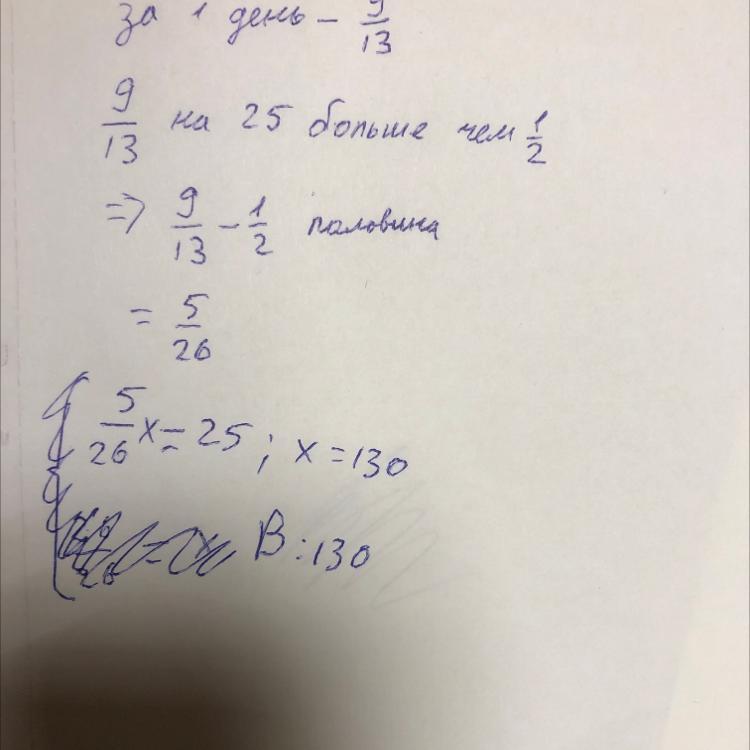 за 1 день – 9/13
9/13 на 25 больше чем 1/2
=> 9/13 – 1/2 половина
= 5/26
5/26 x = 25 ; x = 130
В : 130